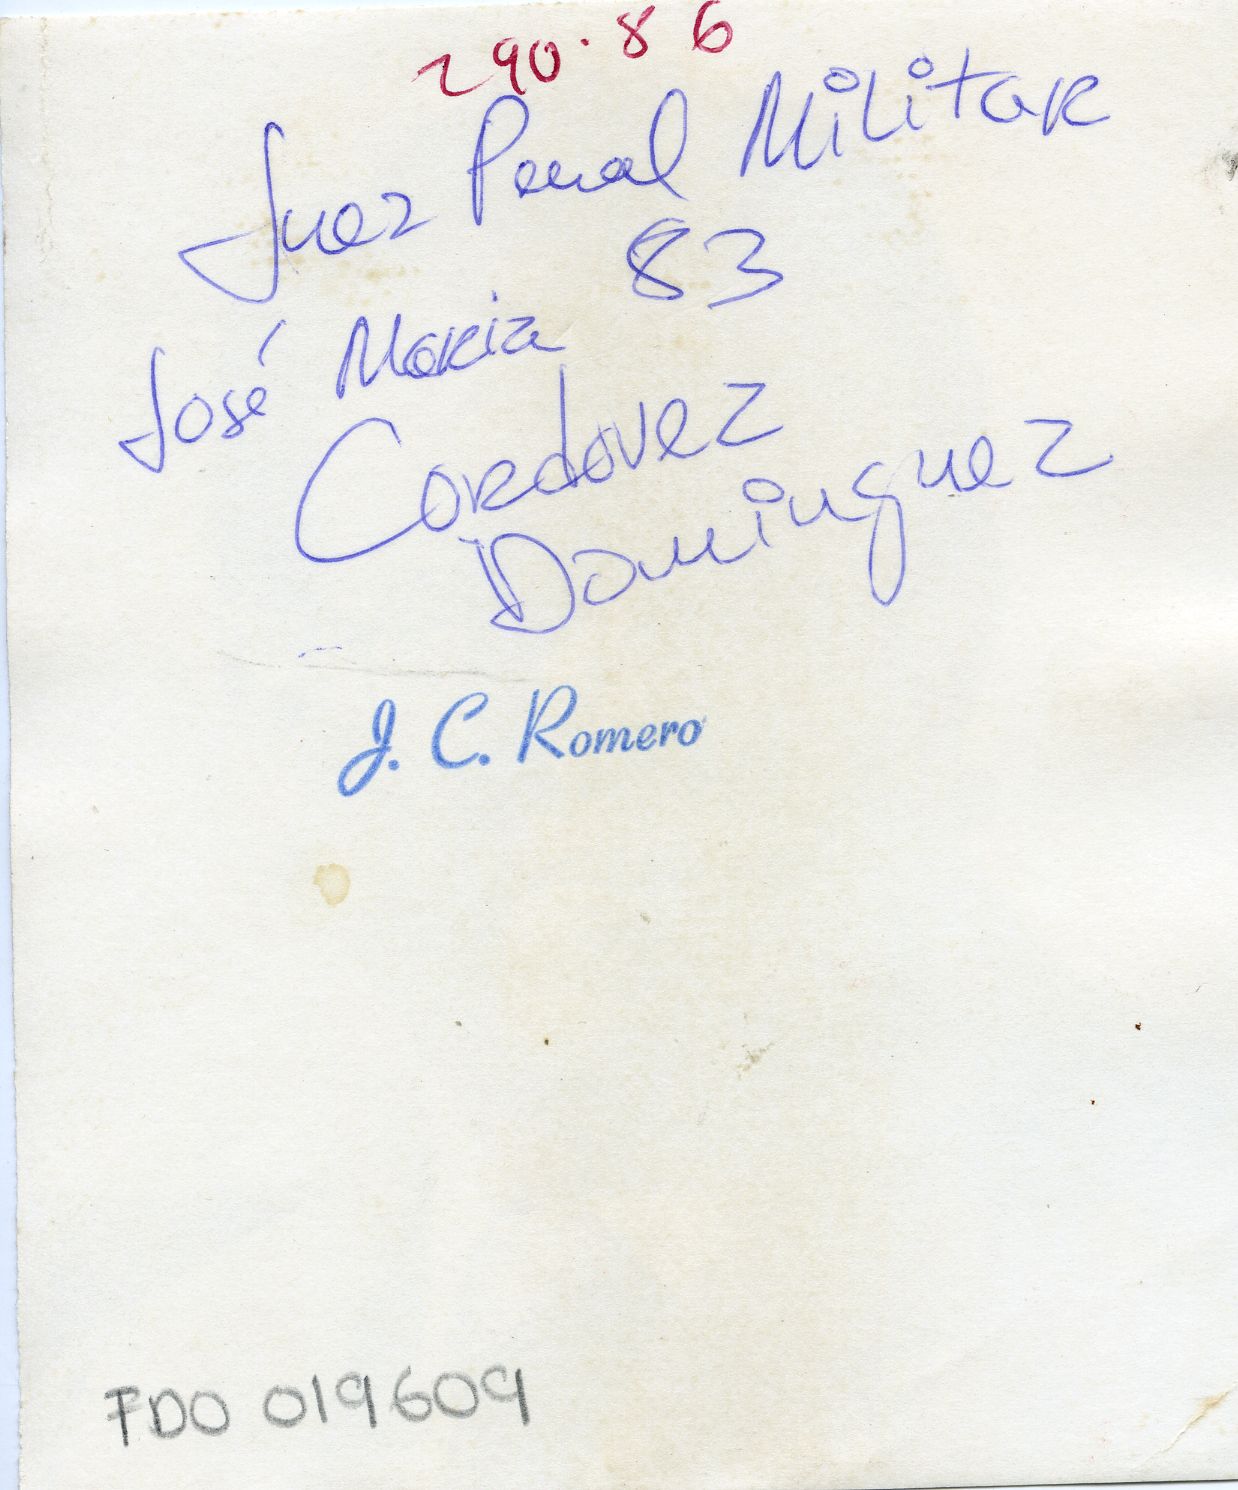 290.86
Juez Penal Militar
83
José Maria
Cordovez
Dominguez
J. C. Romero
FDO 019609